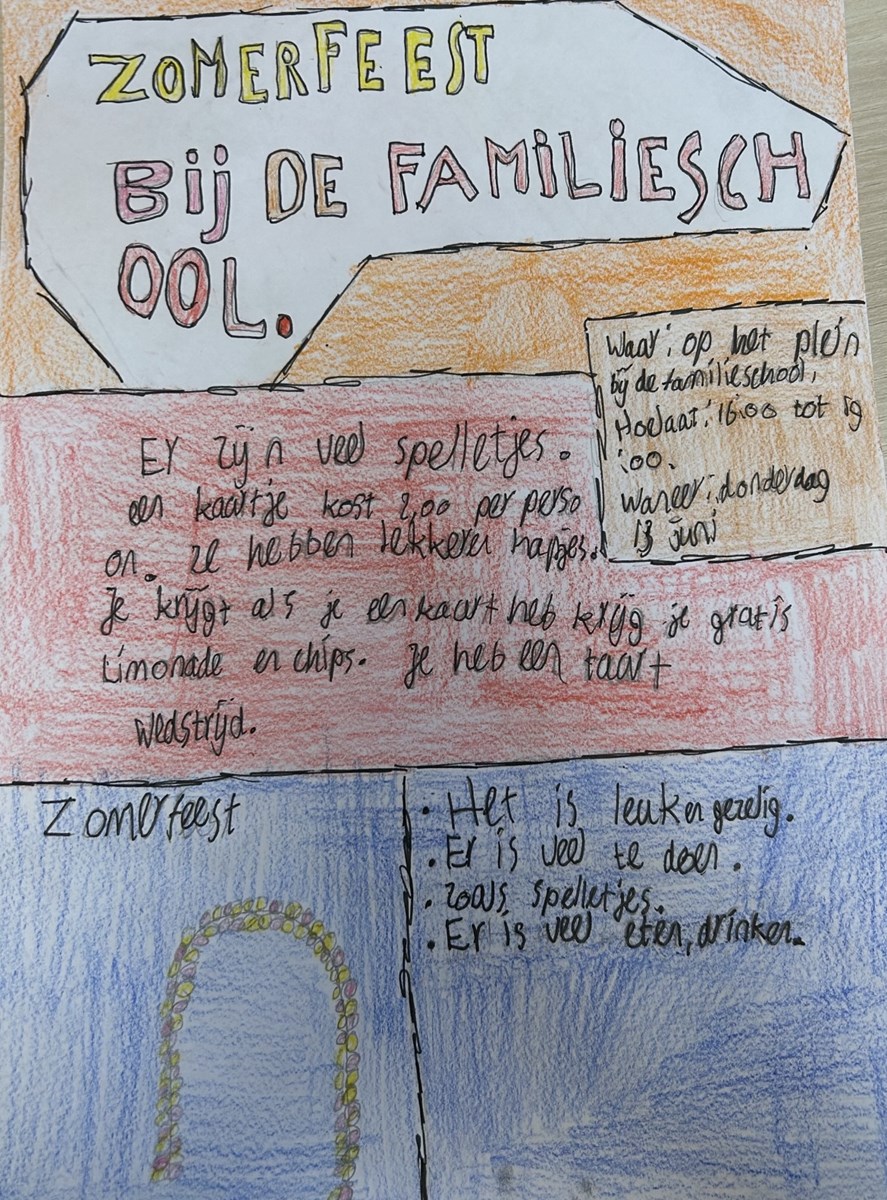 ZOMERFEEST
Bij DE FAMiLiESCH
OOL.
Waar: op het plein
bij de familieschool,
Hoelaat: 16:00 tot 19
:00.
Waneer: donderdag
13 juni
Er zijn veel spelletjes.
een kaartje kost 2,00 per perso
on. ze hebben lekkere hapjes.
Je krijgt als je een kaart heb krijg je gratis
Limonade en chips. Je heb een taart
wedstrijd.
Zomerfeest
• Het is leuk en gezelig.
• Er is veel te doen.
• zoals spelletjes.
• Er is veel eten, drinken.